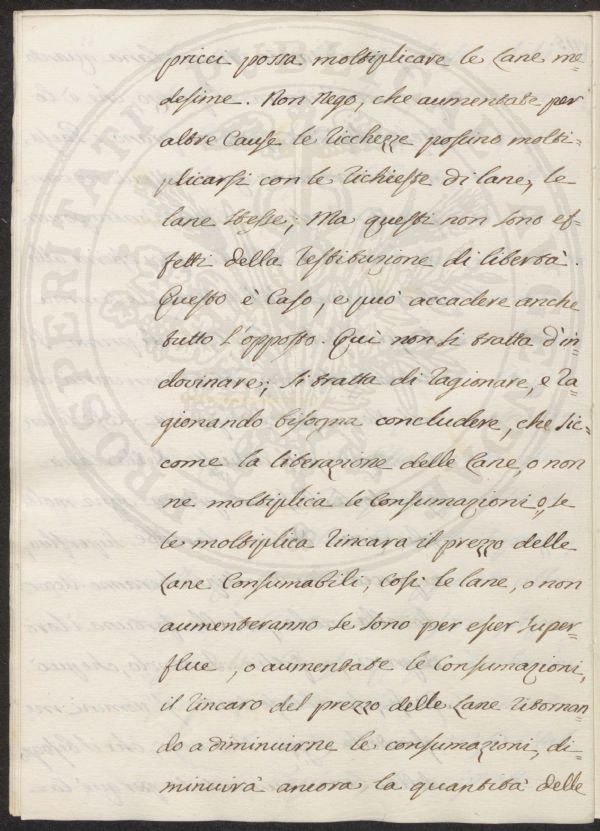 pricci possa moltiplicare le Lane me
desime. Non Nego, che aumentate per
altre Cause le Ricchezze possino molti=
plicarsi con le Richieste di lane, le
lane stesse; Ma questi non sono ef=
fetti della restituzione di libertà.
Questo è Caso, e può accadere anche
tutto l'opposto. Qui non si tratta d'in
dovinare; si tratta di ragionare, e ra
gionando bisogna concludere, che sic=
come la liberazione delle Lane, o non
ne moltiplica le Consumazioni o, se
le moltiplica rincara il prezzo delle
Lane Consumabili, così le lane, o non
aumenteranno se sono per esser super=
flue, o aumentate le Consumazioni,
il rincaro del prezzo delle Lane ritornan
do a diminuirne le consumazioni, di=
minuirà ancora la quantità delle
PROSPERITATI PUBLICAE AUGENDAE